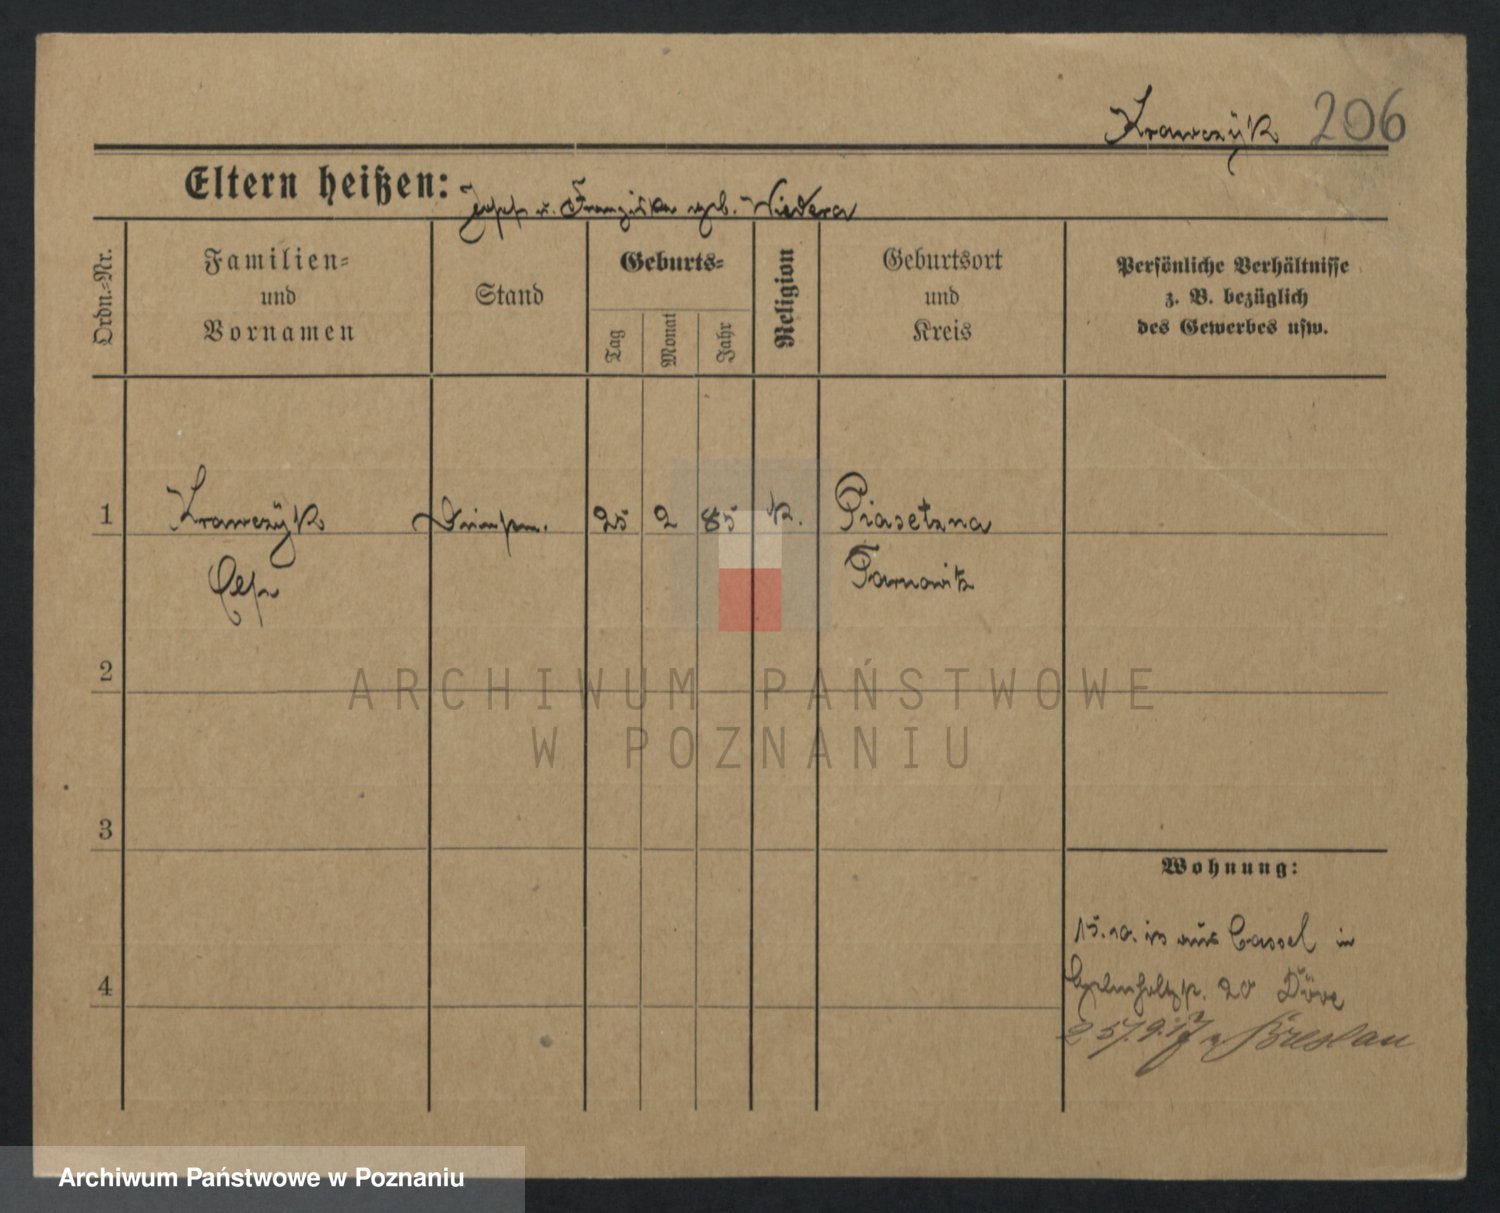 Krawczÿk 206
Eltern heißen: Josef u. Franziska geb. Wiedera
Ordn.-Nr.
Familien-
und
Vornamen
Stand
Geburts-
Tag
Monat
Jahr
Religion
Geburtsort
und
Kreis
Persönliche Verhältnisse
z. B. bezüglich
des Gewerbes usw.
1 Krawczÿk 25 2 85 k. Piasetzna
Tarnowitz
2
ARCHIWUM PAŃSTWOWE
W POZNANIU
3
Wohnung:
15.10. aus Cassel in
4
20
25/9.17 n Breslau
Archiwum Państwowe w Poznaniu